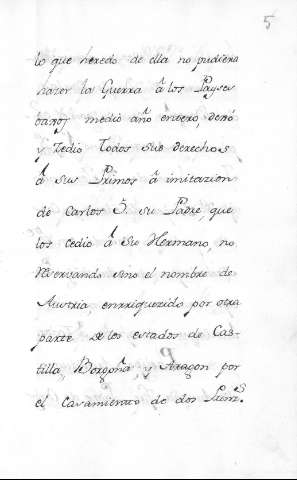 5
lo que heredo de ella no pudiera
hazer la Guerra â los Payses
baxos medio año entero, dexó
y Zedio Todos sus derechos
â sus Primos â imitazion
de Carlos 5. su Padre, que
los cedio â su Hermano, no
Reservando sino el nombre de
Austria, enrriquezido por otra
parte de los estados de Cas-
tilla, Borgoña, y Aragon por
el Casamiento de dos